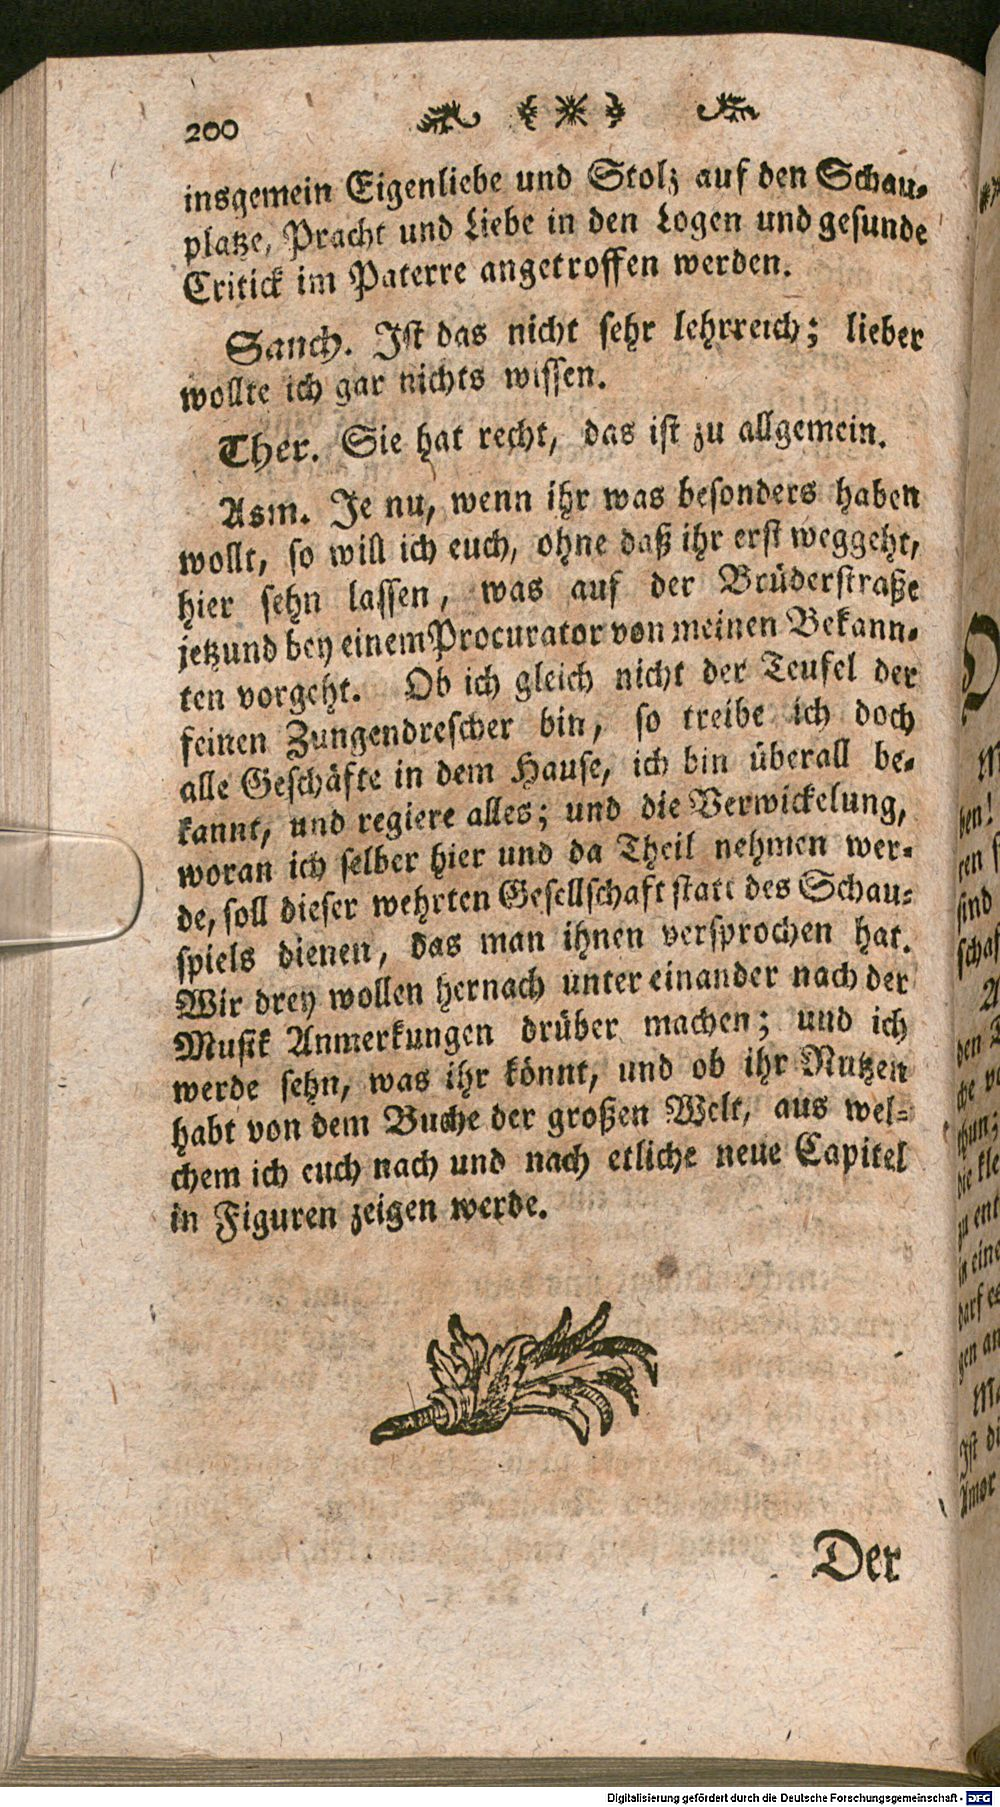 200
insgemein Eigenliebe und Stolz auf den Schau-
platze, Pracht und Liebe in den Logen und gesunde
Critick im Paterre angetroffen werden.
Sanch. Ist das nicht sehr lehrreich; lieber
wollte ich gar nichts wissen.
Ther. Sie hat recht, das ist zu allgemein.
Asm. Je nu, wenn ihr was besonders haben
wollt, so will ich euch, ohne daß ihr erst weggeht,
hier sehn lassen, was auf der Brüderstraße
jetzund bey einem Procurator von meinen Bekann-
ten vorgeht. Ob ich gleich nicht der Teufel der
feinen Zungendrescher bin, so treibe ich doch
alle Geschäfte in dem Hause, ich bin überall be-
kannt, und regiere alles; und die Verwickelung,
woran ich selber hier und da Theil nehmen wer-
de, soll dieser wehrten Gesellschaft statt des Schau-
spiels dienen, das man ihnen versprochen hat.
Wir drey wollen hernach unter einander nach der
Musik Anmerkungen drüber machen; und ich
werde sehn, was ihr könnt, und ob ihr Nutzen
habt von dem Buche der großen Welt, aus wel-
chem ich euch nach und nach etliche neue Capitel
in Figuren zeigen werde.
Der
Digitalisierung gefördert durch die Deutsche Forschungsgemeinschaft - DFG